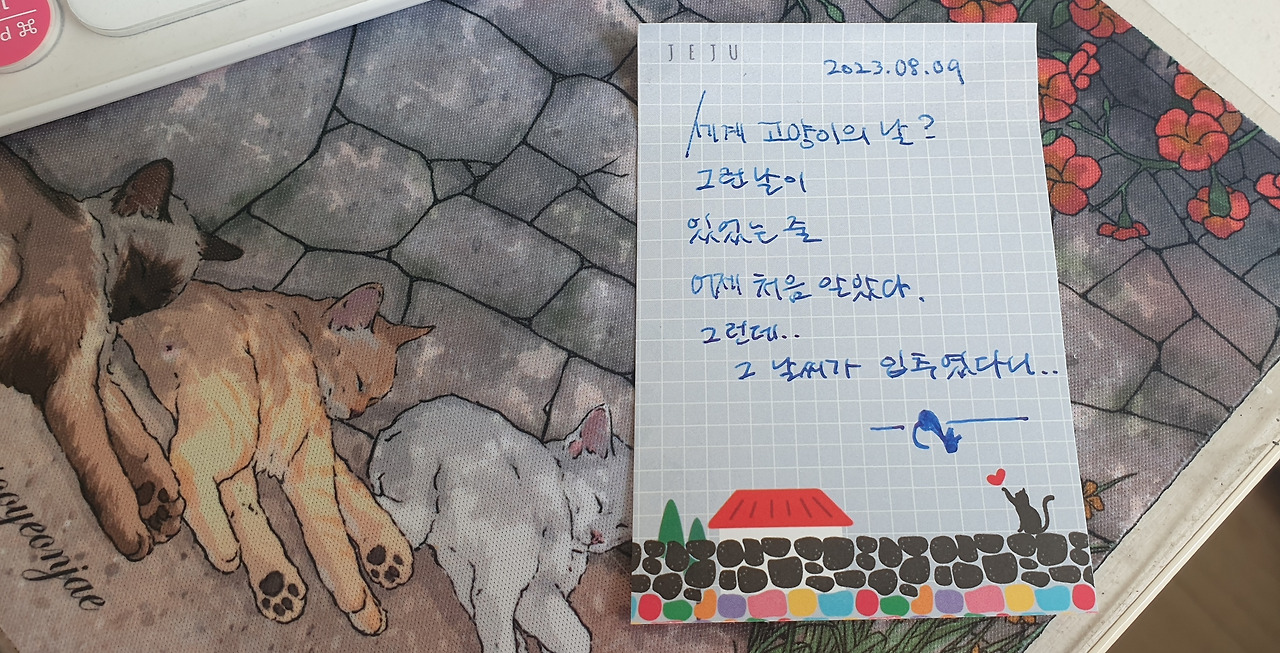 JEJU
2023.08.09
세계 고양이의 날?
그런 날이
있었는 줄
어제 처음 알았다.
그런데..
그 날씨가 입추였다니..
oyeonjae